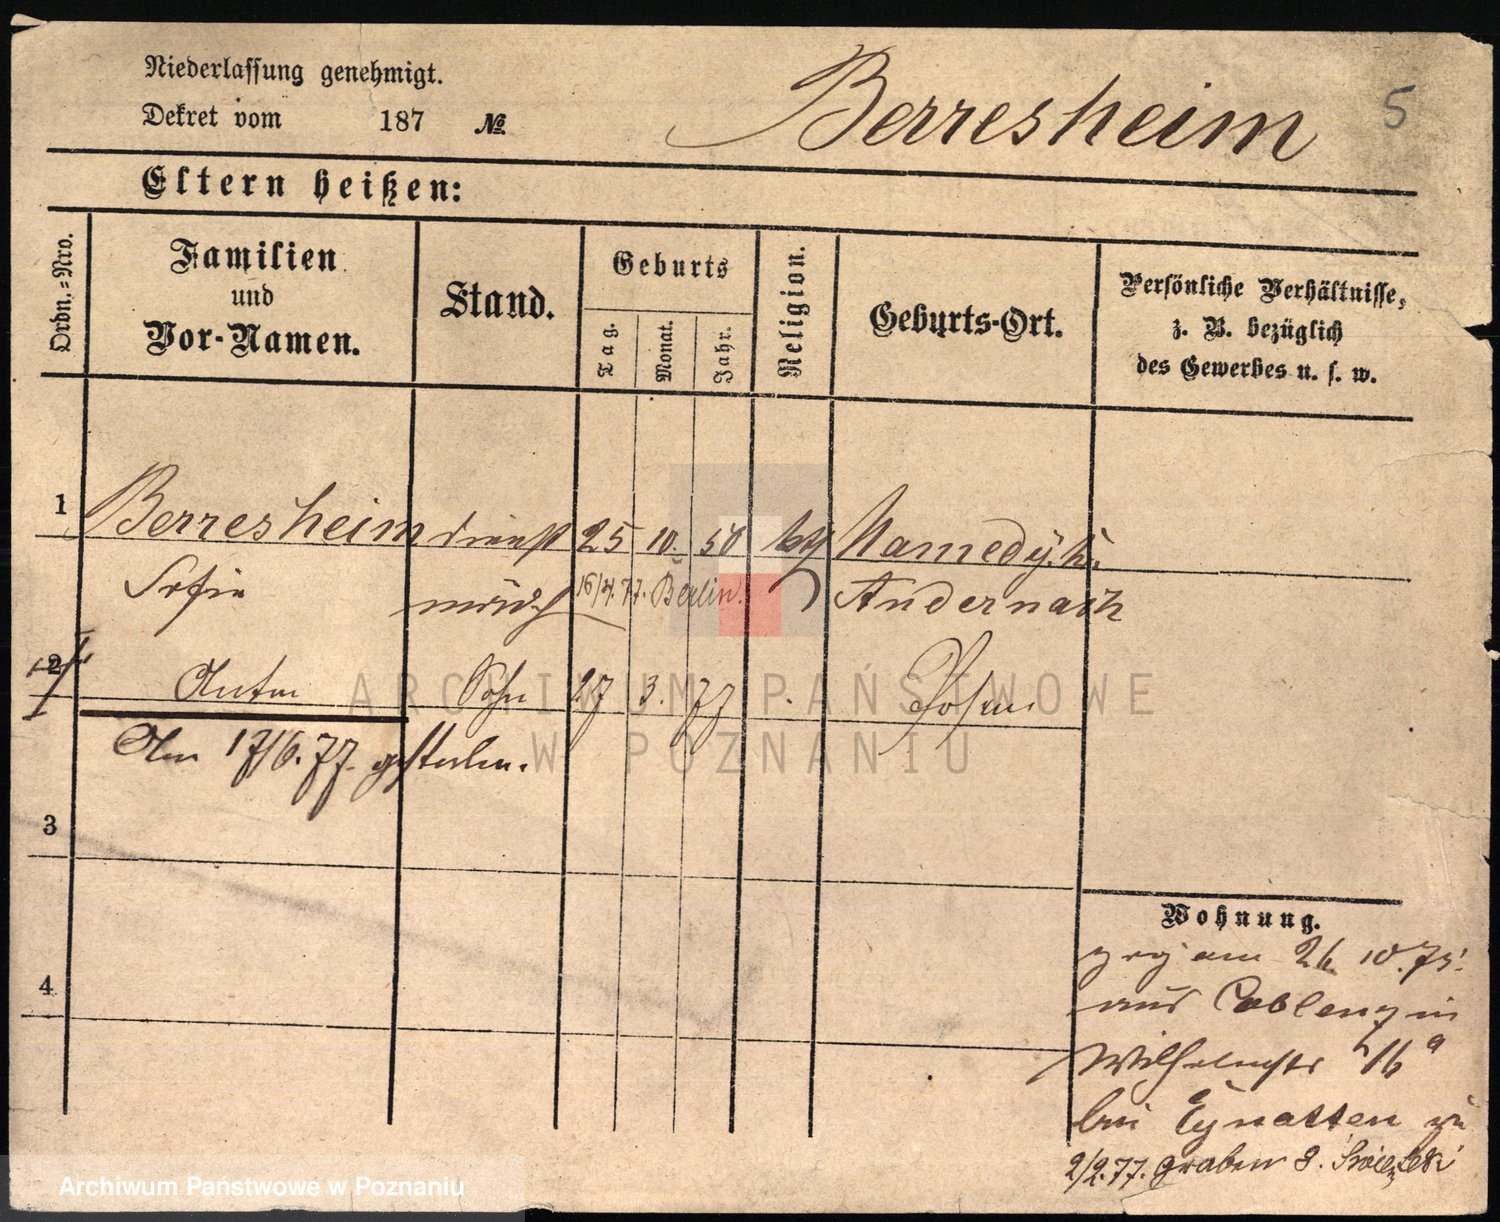 Niederlassung genehmigt.
Dekret vom 187 №
Berresheim 5
Eltern heißen:
Ordn.-Nro.
Familien
und
Vor-Namen.
Stand.
Geburts
Tag.
Monat.
Jahr.
Religion.
Geburts-Ort.
Persönliche Verhältnisse,
z. B. bezüglich
des Gewerbes u. s. w.
1 Berresheim dienst 25 10. 50 Namedy
Sofie mädch 16/4. 77. Berlin. Andernach
2 Anton Sohn 27 3. 77 Posen
Am 17/6. 77. gestorben.
3
4
Wohnung.
am 26. 10. 75.
aus Coblenz in
Wilhelmstr 16a
bei Eynatten
2/2. 77. Graben 8.
ARCHIWUM PAŃSTWOWE
W POZNANIU
Archiwum Państwowe w Poznaniu